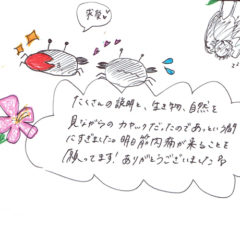 求愛♡
たくさんの説明と、生き物、自然を
見ながらのカヤックだったのであっという間
にすぎました。明日筋肉痛が来ることを
願ってます!ありがとうございました